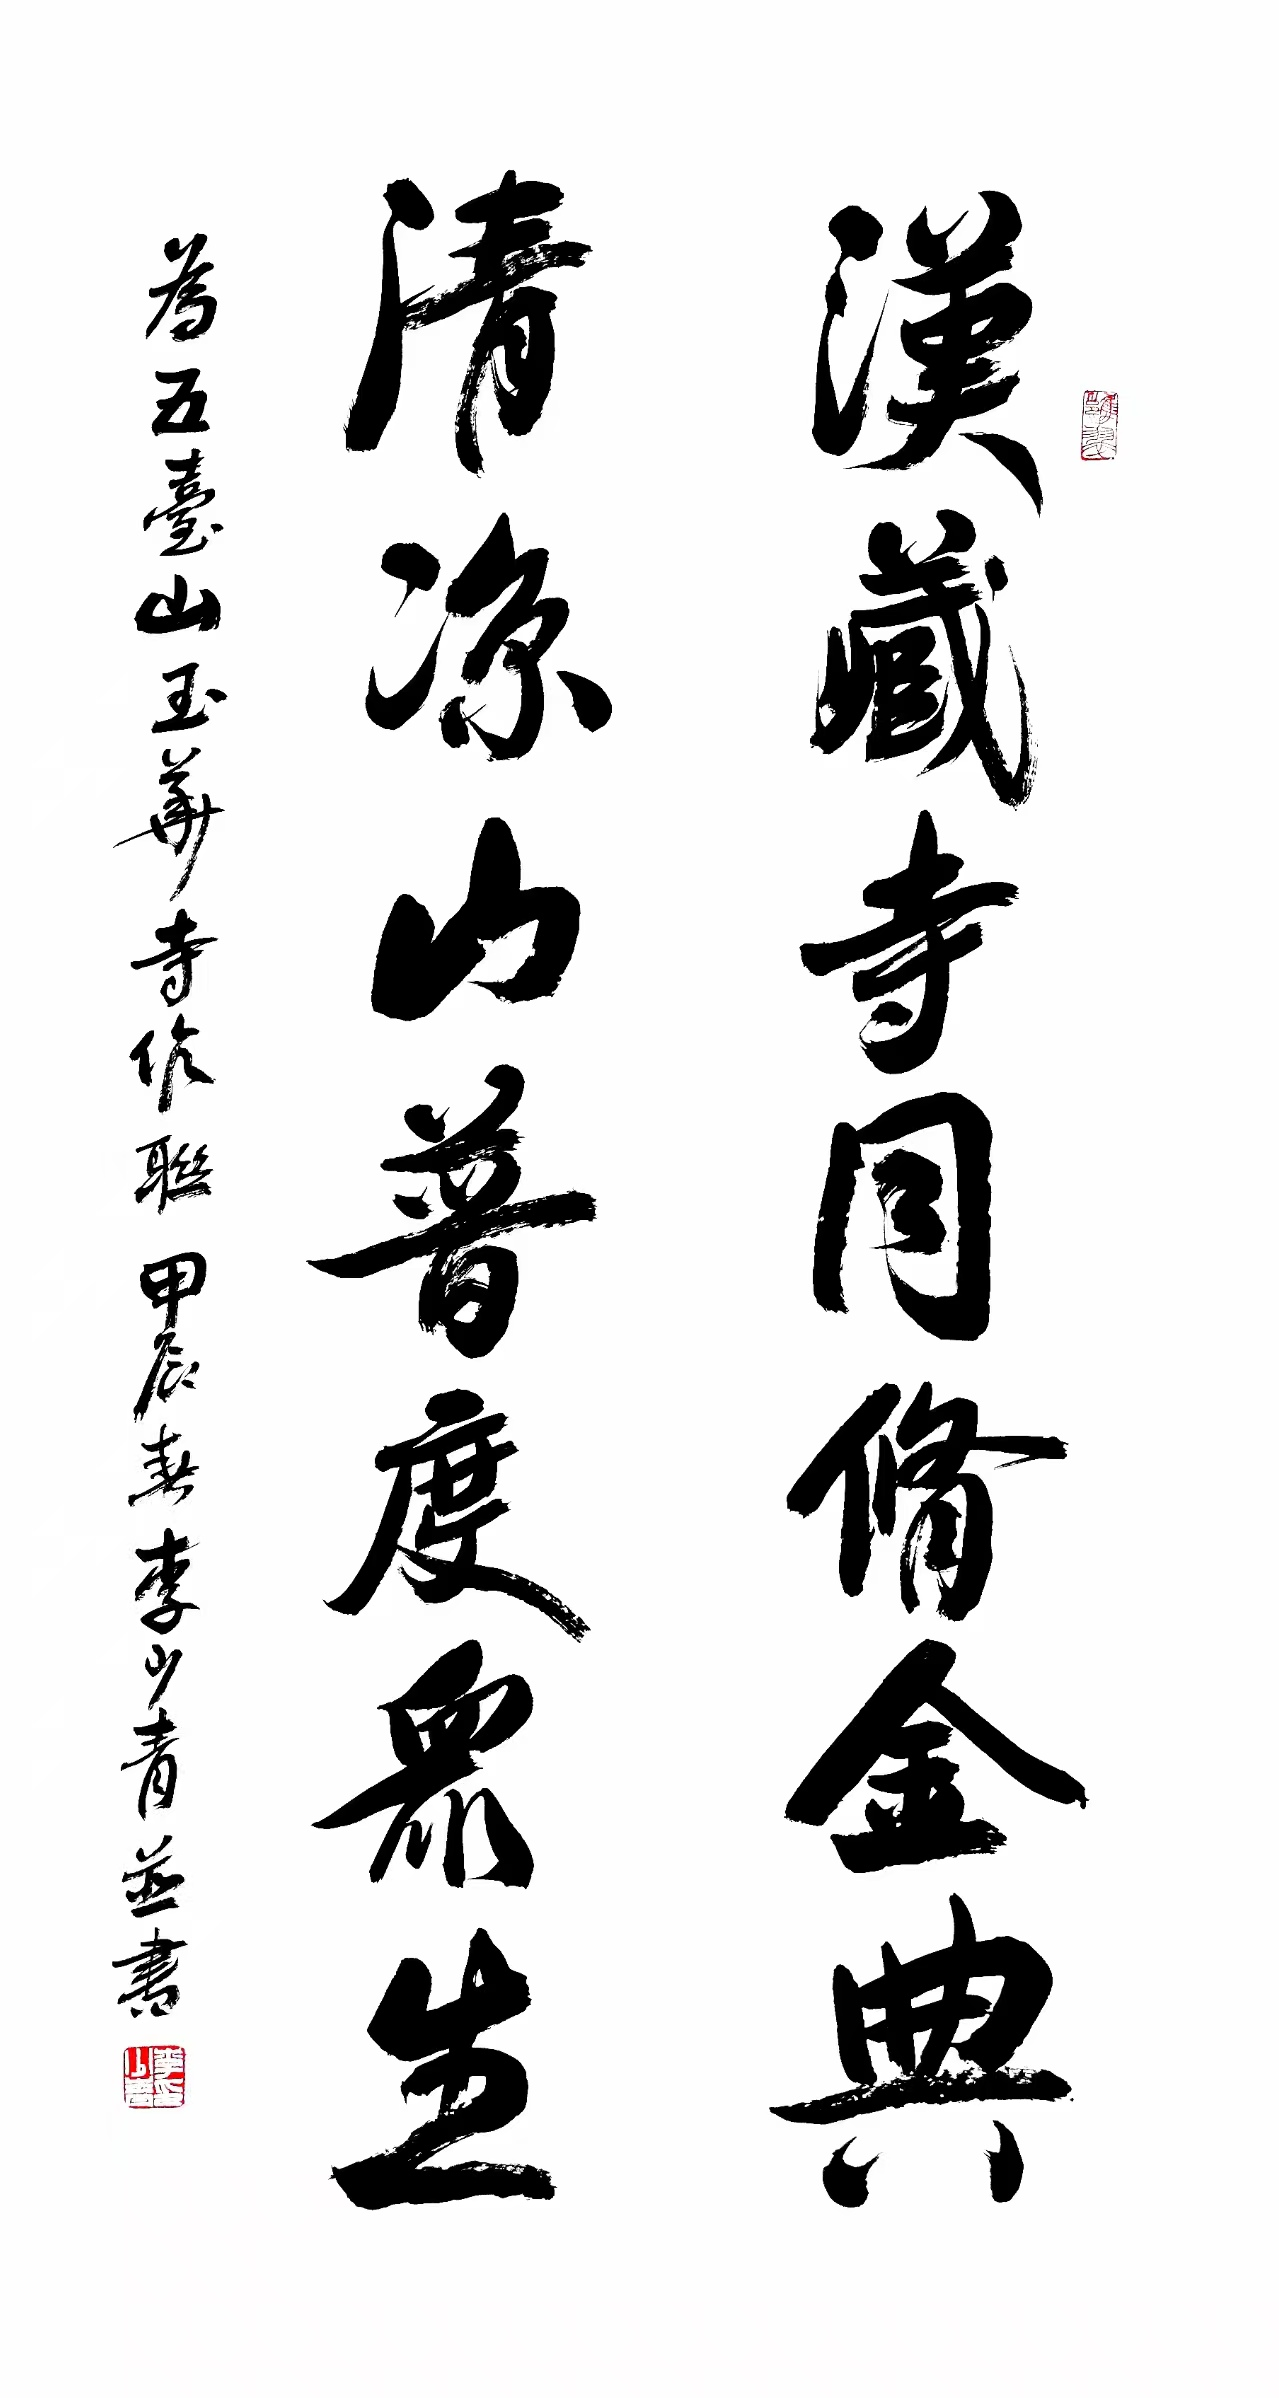 漢藏寺同脩金典
清涼山普度眾生
為五臺山玉華寺作聯 甲辰春李少青並書